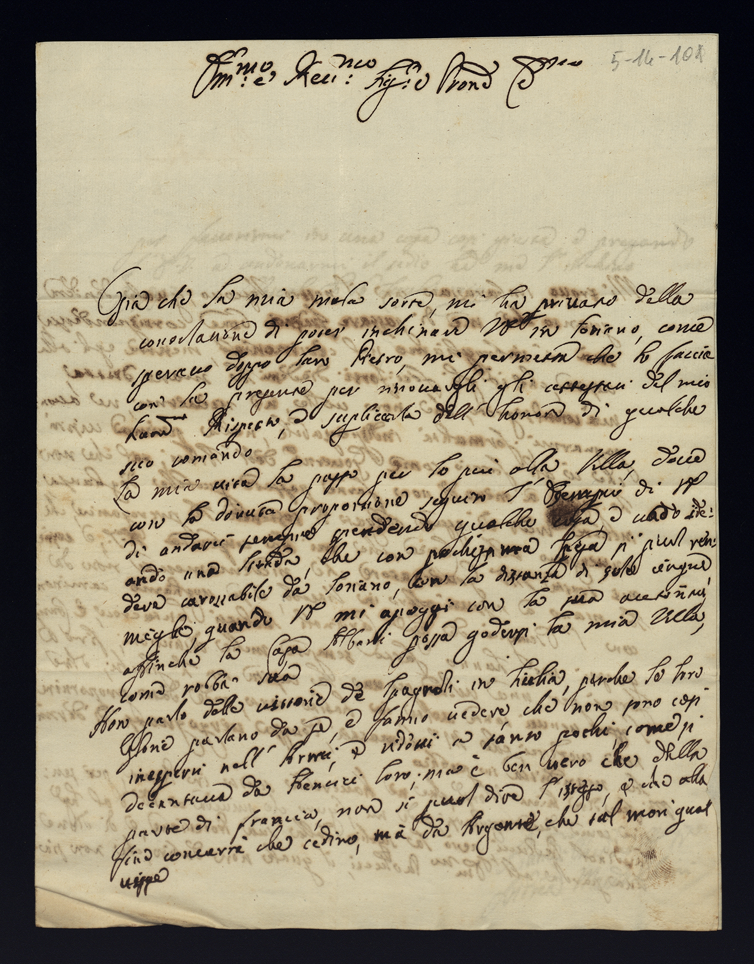 Ill:mo e Rev:mo Sig:re Prone Col:mo
5-14-101
Già che la mia mala sorte, mi ha privato della
consolatione di poter inchinare VS in Soriano, come
speravo doppo San Pietro, mi permetta che lo faccia
con la presente per rinovargli gli attestati del mio
Rispetto, e supplicarla dell'honore di qualche
suo comando
La mia vita la passo per lo più alla Villa, dove
con la dovuta proportione seguito l' di VS
di andarci sempre spendendo qualche cosa e vado
ando una strada, che con pochissima spesa si puol ren:
dere carozzabile da Soriano, con la distanza di sole cinque
meglia quando VS mi apoggi con la sua
affinche la Casa Albani possa godersi la mia Villa,
come robba sua
Non parlo delle vittorie de Spagnoli in Italia, perche le loro
parlano da se, e fanno vedere che non sono così
inesperti nell'Armi, e ridotti a tanto pochi, come si
decantava da loro, ma è ben vero che della
parte di Francia, non si puol dire l'istesso, e che alla
fine converrà che cedino, mà da che tal mori qual
visse